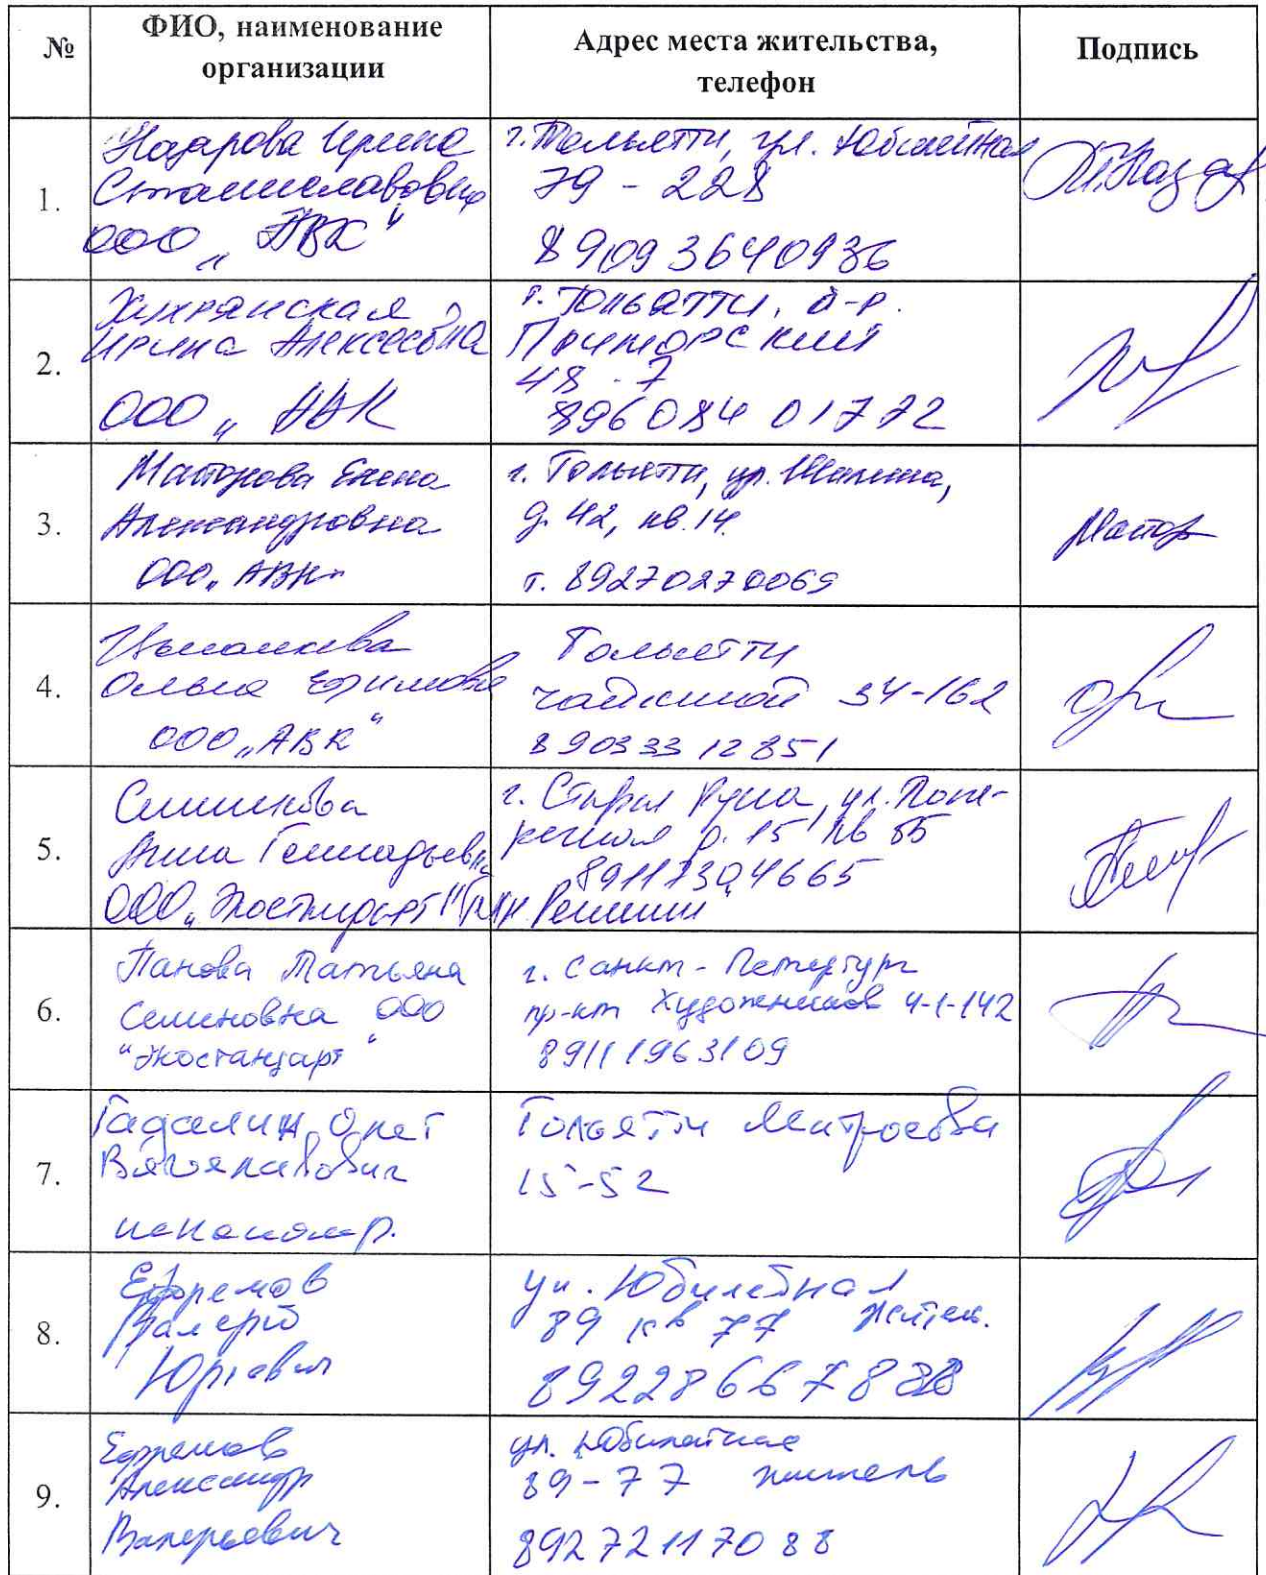 №
ФИО, наименование
организации
Адрес места жительства,
телефон
Подпись
1.
Назарова Ирина
Станиславовна
ООО „АВК“
г. Тольятти, ул. Юбилейная
79 - 228
89093640936
2.
Ирина Алексеевна
ООО „АВК
г. Тольятти, б-р.
Приморский
48 - 7
89608401772
3.
Маторова Елена
Александровна
ООО „АВК“
г. Тольятти, ул.
д. 42, кв. 14.
т. 89270270069
4.
Ольга Ефимовна
ООО „АВК“
Тольятти
Чайкиной 34-162
89033312851
5.
Анна Геннадьевна
ООО „Экостандарт"
г. Старая Русса, ул.
д. 15 кв 55
89117304665
6.
Панова Татьяна
Семеновна ООО
"Экостандарт"
г. Санкт-Петербург
пр-кт Художников 4-1-142
89111963109
7.
Гадалин Олег
Тольятти Матросова
15-52
8.
Ефремов
Валерий
Юрьевич
ул. Юбилейная
89 кв 77 житель.
9.
Ефремов
Александр
Валерьевич
ул. Юбилейная
89-77 житель
89272117088